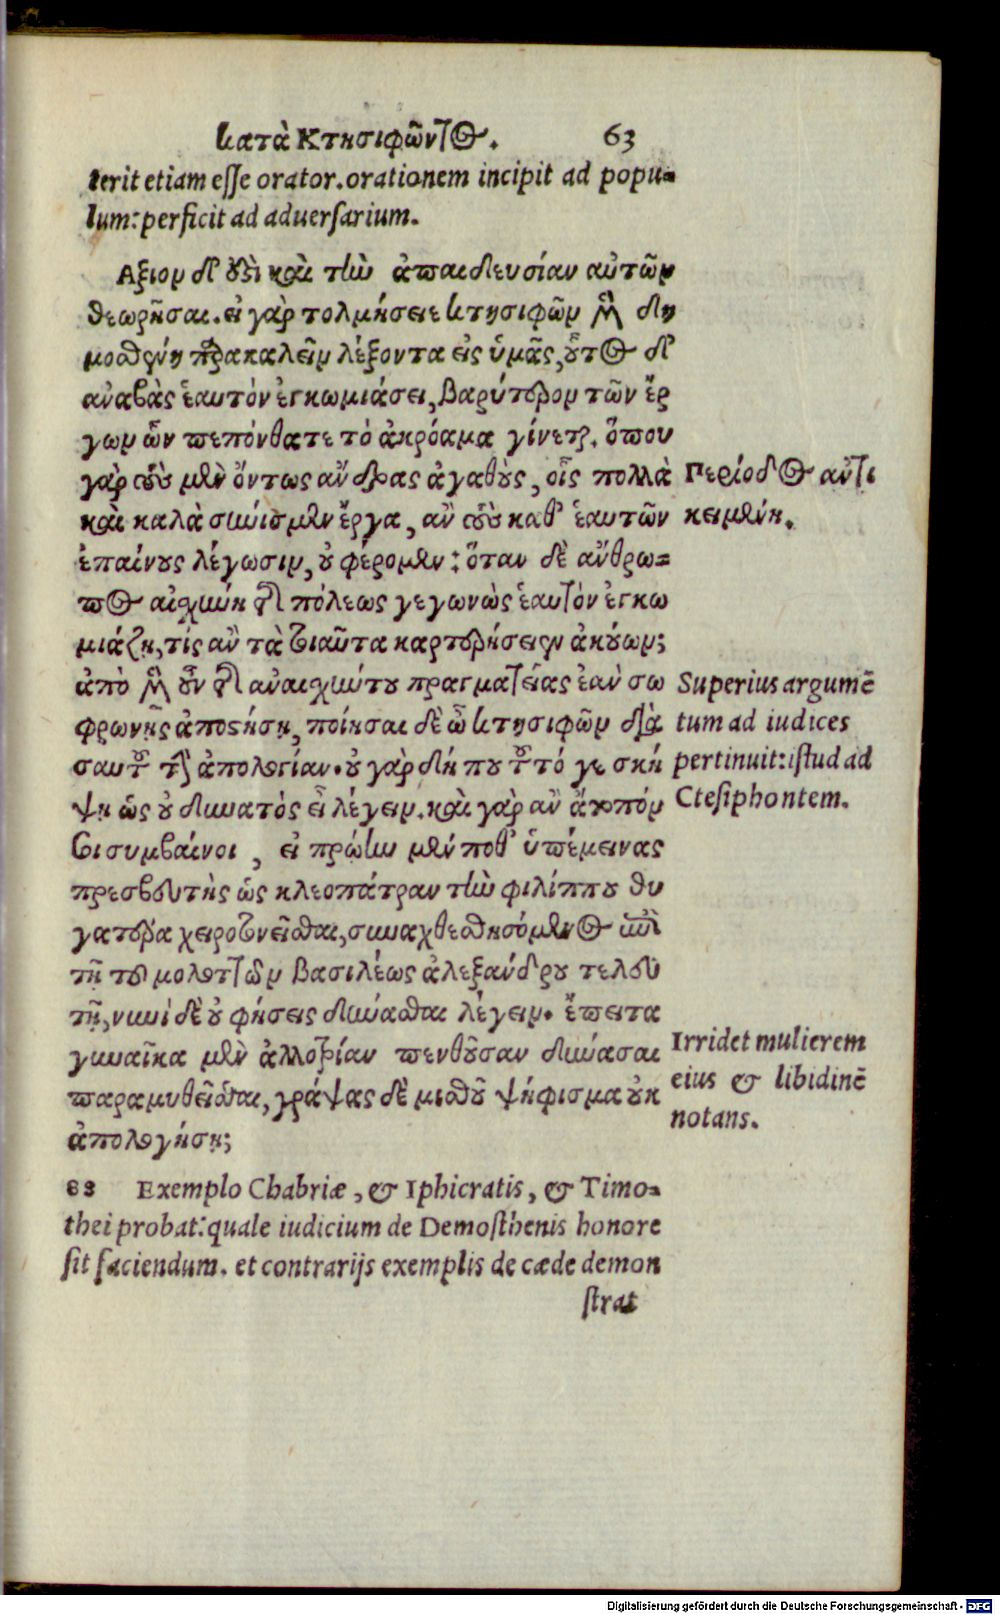 κατὰ Κτησιφῶντος. 63
terit etiam esse orator. orationem incipit ad popu-
lum: perficit ad aduersarium.
Αξιον δ' ὅξὶ καὶ τὴν ἀπαιδευσίαν αὐτῶν
θεωρῆσαι. εἰ γὰρ τολμήσειε κτησιφῶν μὲν δη
μοσθένη παρακαλεῖν λέξοντα εἰς ὑμᾶς, οὗτος δ'
ἀναβὰς ἑαυτόν ἐγκωμιάσει, βαρύτερον τῶν ἔρ
γων ὧν πεπόνθατε τὸ ἀκρόαμα γίνεται. ὅπου
γὰρ τοὺς μὲν ὄντως ἄνδρας ἀγαθοὺς, οἷς πολλὰ
καὶ καλὰ σύνισμεν ἔργα, ἂν τοὺς καθ' ἑαυτῶν
ἐπαίνους λέγωσιν, οὐ φέρομεν: ὅταν δὲ ἄνθρω-
πος αἰσχύνη τῆς πόλεως γεγωνὼς ἑαυτὸν ἐγκω
μιάζῃ, τίς ἂν τὰ τοιαῦτα καρτερήσειεν ἀκούων;
ἀπὸ μὲν οὖν τῆς ἀναισχύντου πραγματείας ἐὰν σω
φρωνῇς ἀποστήσῃ, ποίησαι δὲ ὦ κτησιφῶν διὰ
σαυτοῦ τὴν ἀπολογίαν. οὐ γὰρ δή που τοῦτό γε σκή
ψῃ ὡς οὐ δυνατὸς εἶ λέγειν. καὶ γὰρ ἂν ἄτοπόν
σοι συμβαίνοι, εἰ πρώην μὲν ποθ' ὑπέμεινας
πρεσβευτὴς ὡς κλεοπάτραν τὴν φιλίππου θυ
γατέρα χειροτονεῖσθαι, συναχθεσθησόμενος ἐπὶ
τῇ τοῦ μολοττῶν βασιλέως ἀλεξάνδρου τελευ
τῇ, νυνὶ δὲ οὐ φήσεις δύνασθαι λέγειν. ἔπειτα
γυναῖκα μὲν ἀλλοτρίαν πενθοῦσαν δύνασαι
παραμυθεῖσθαι, γράψας δὲ μισθοῦ ψήφισμα οὐκ
ἀπολογήσῃ;
88 Exemplo Chabriæ, & Iphicratis, & Timo-
thei probat: quale iudicium de Demosthenis honore
sit faciendum. et contrarijs exemplis de cæde demon
strat
Περίοδος ἀντι
κειμένη.
Superius argumẽ
tum ad iudices
pertinuit: istud ad
Ctesiphontem.
Irridet mulierem
eius & libidinẽ
notans.
Digitalisierung gefördert durch die Deutsche Forschungsgemeinschaft - DFG